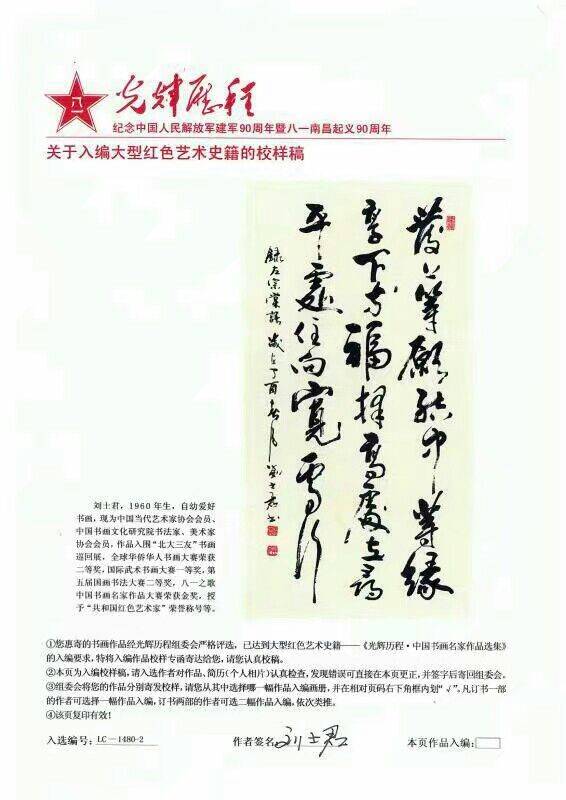 八一
光辉历程
纪念中国人民解放军建军90周年暨八一南昌起义90周年
关于入编大型红色艺术史籍的校样稿
發上等願结中等缘
享下等福择高處立尋
平處住向寬處行
録左宗棠語 歲在丁酉春月 劉士君书
刘士君，1960年生，自幼爱好
书画，现为中国当代艺术家协会会员、
中国书画文化研究院书法家、美术家
协会会员，作品入围“北大三友”书画
巡回展，全球华侨华人书画大赛荣获
二等奖，国际武术书画大赛一等奖，第
五届国画书法大赛二等奖，八一之歌
中国书画名家作品大赛荣获金奖，授
予“共和国红色艺术家”荣誉称号等。
①您惠寄的书画作品经光辉历程组委会严格评选，已达到大型红色艺术史籍——《光辉历程·中国书画名家作品选集》
的入编要求，特将入编作品校样专函寄达给您，请您认真校稿。
②本页为入编校样稿，请入选作者对作品、简历(个人相片)认真检查，发现错误可直接在本页更正，并签字后寄回组委会。
③组委会将您的作品分别寄发校样，请您从其中选择哪一幅作品入编画册，并在相对页码右下角框内划“√”。凡订书一部
的作者可选择一幅作品入编，订书两部的作者可选二幅作品入编，依次类推。
④该页复印有效！
入选编号：LC—1480-2 作者签名 刘士君 本页作品入编：